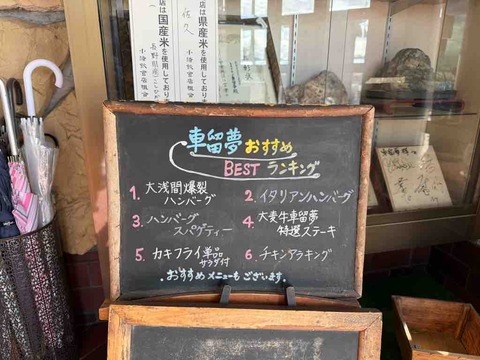 店は県産米を使用しており
佐久
小海飲食店組合
店は国産米を使用しており
長野県産こしひかり
小海飲食店組合
車留夢おすすめ
BEST ランキング
1. 大浅間爆裂
ハンバーグ
2. イタリアンハンバーグ
3. ハンバーグ
スパゲティー
4. 大麦牛車留夢
特選ステーキ
5. カキフライ単品
サラダ付
6. チキンアラキング
.おすすめメニューもございます.